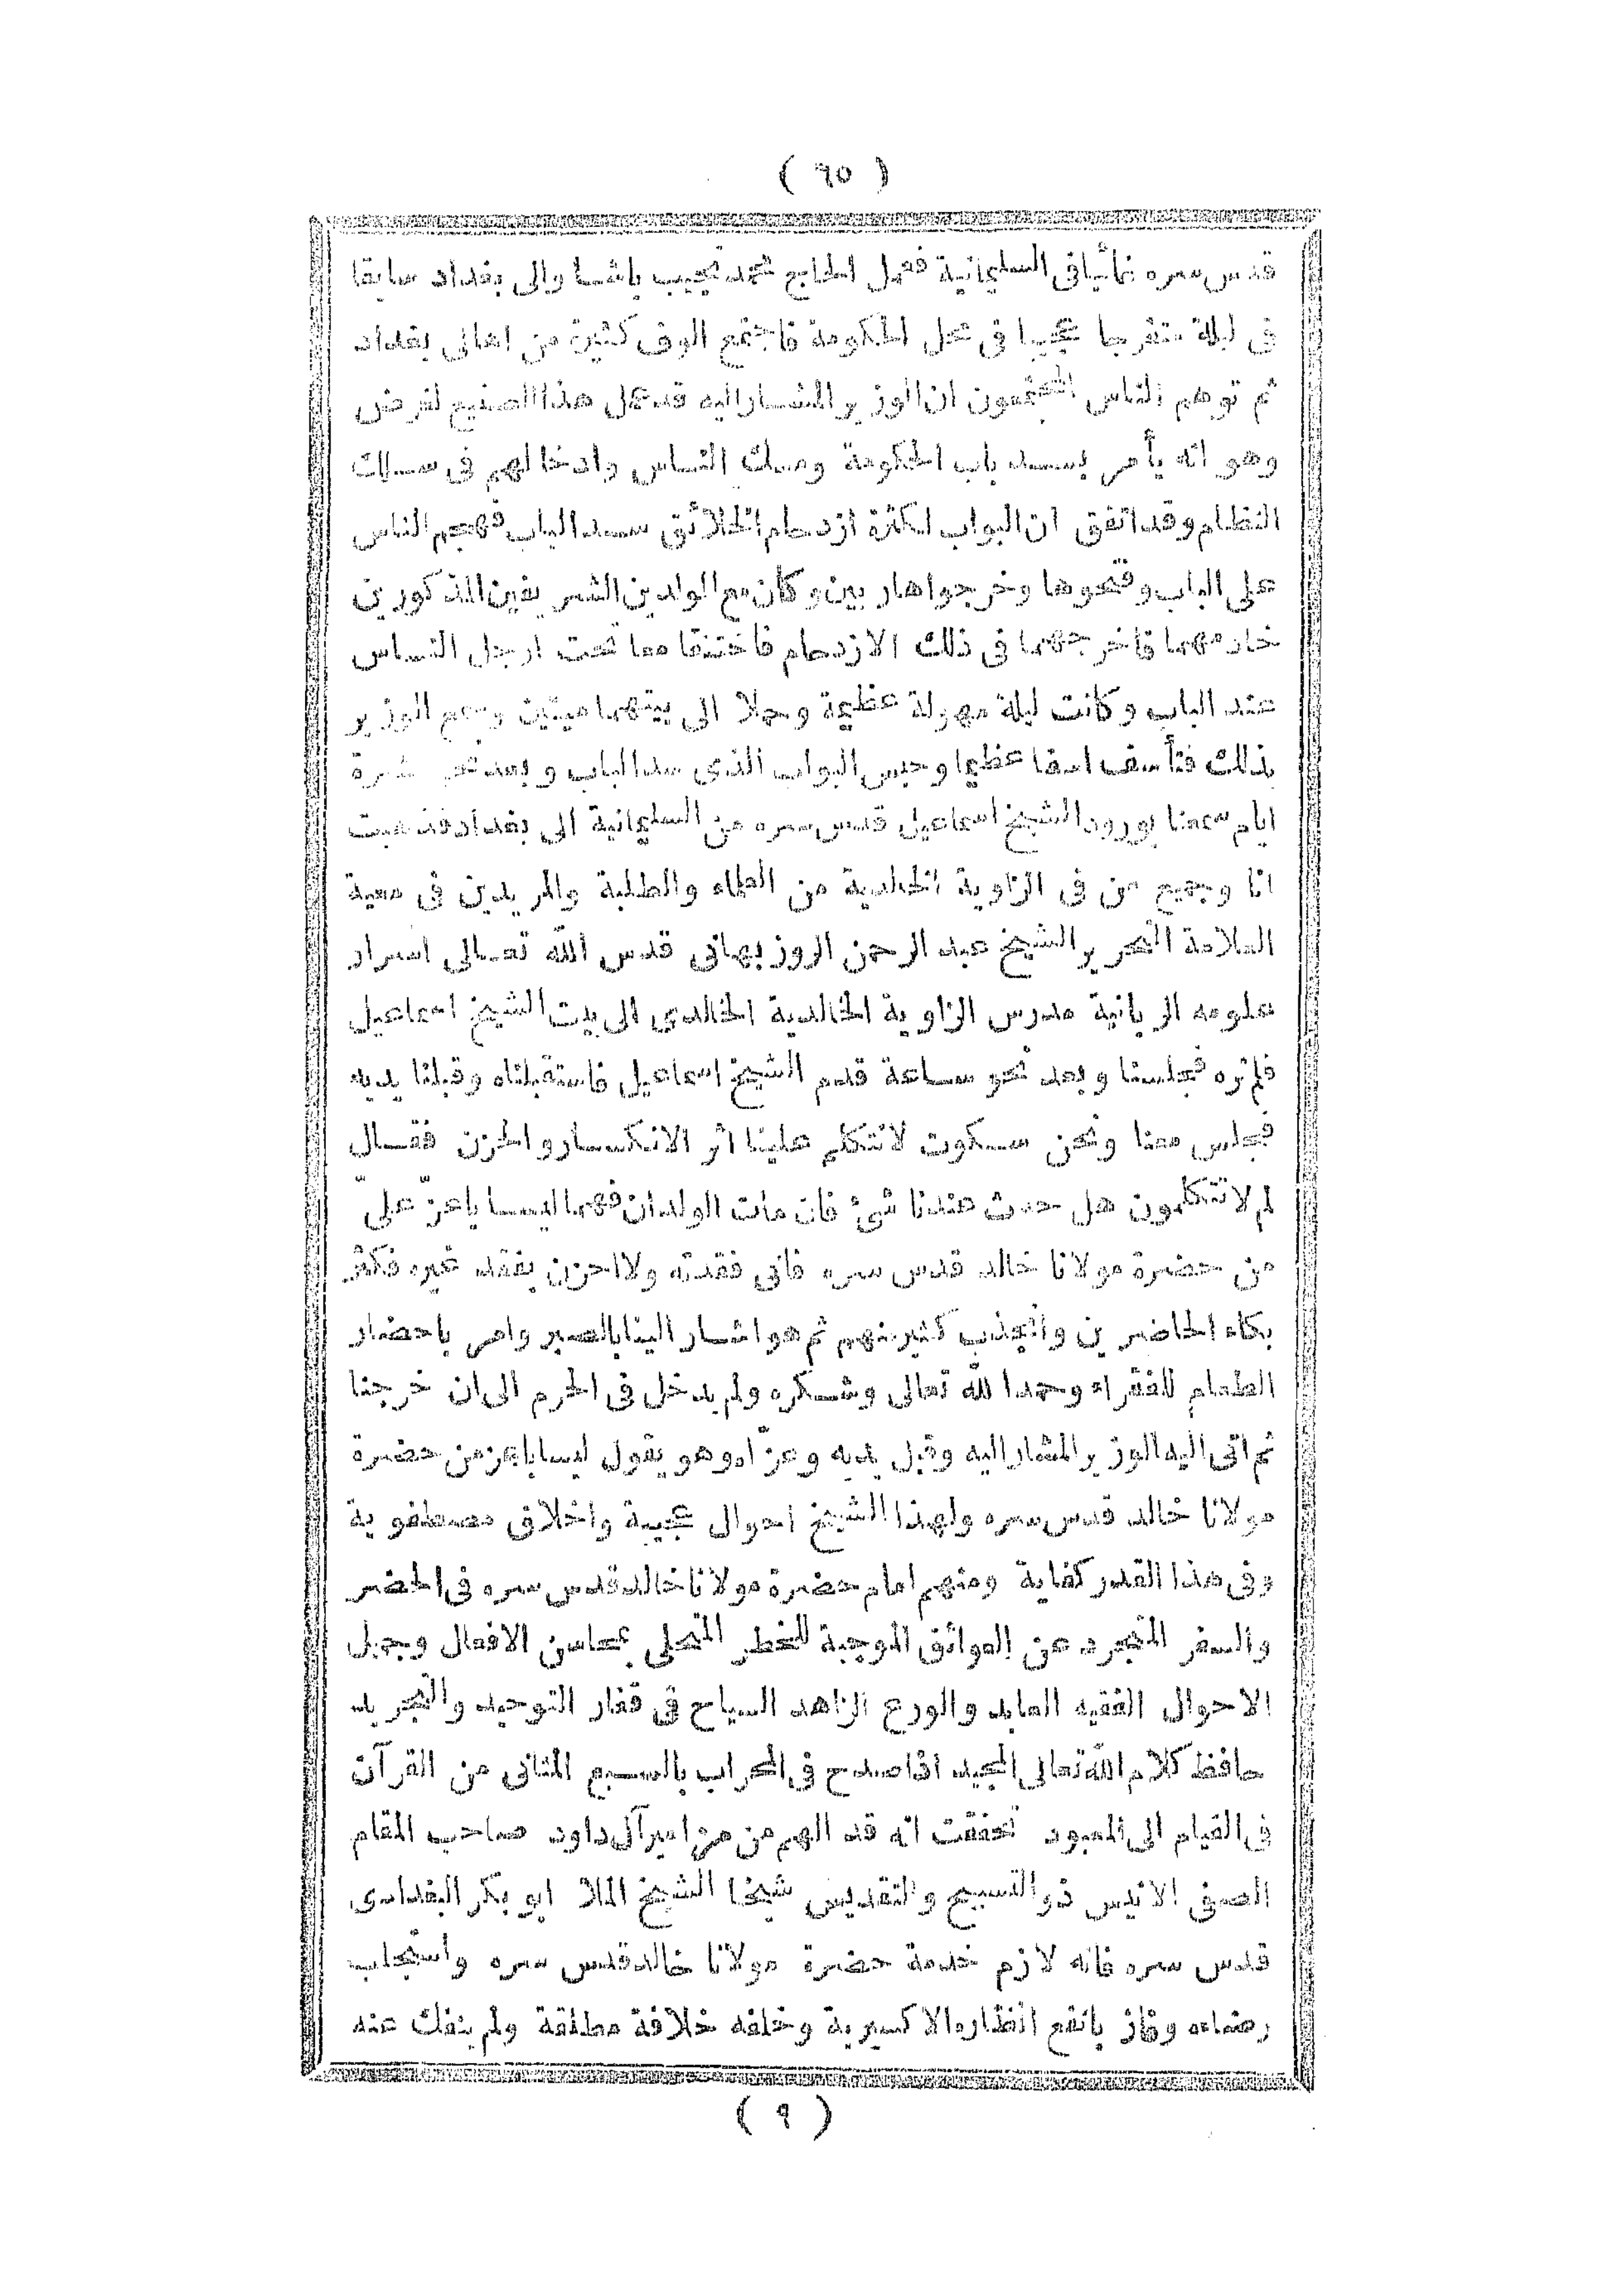 ( ٦٥ )
قدس سره غائبا فى السليمانية فعمل الحاج محمد نجيب باشا والى بغداد سابقا
فى ليلة متفرجا عجيبا فى محل الحكومة فاجتمع الوف كثيرة من اهالى بغداد
ثم توهم الناس المجتمعون ان الوزير المشار اليه قد عمل هذا الصنيع لغرض
وهو انه يأمر بسد باب الحكومة ومسك الناس وادخالهم فى سلك
النظام وقد اتفق ان البواب لكثرة ازدحام الخلائق سد الباب فهجم الناس
على الباب وفتحوها وخرجوا هاربين وكان مع الولدين الشريفين المذكورين
خادمهما فاخرجهما فى ذلك الازدحام فاختنقا معا تحت ارجل الناس
عند الباب وكانت ليلة مهولة عظيمة وحملا الى بيتهما ميتين وسمع الوزير
بذلك فتأسف اسفا عظيما وحبس البواب الذى سد الباب وبعد نحو عشرة
ايام سمعنا بورود الشيخ اسماعيل قدس سره من السليمانية الى بغداد فذهبت
انا وجميع من فى الزاوية الخالدية من العلماء والطلبة والمريدين فى معية
العلامة النحرير الشيخ عبد الرحمن الروزبهانى قدس الله تعالى اسرار
علومه الربانية مدرس الزاوية الخالدية الخالدى الى بيت الشيخ اسماعيل
فلم نره فجلسنا وبعد نحو ساعة قدم الشيخ اسماعيل فاستقبلناه وقبلنا يديه
فجلس معنا ونحن سكوت لانتكلم علينا اثر الانكسار والحزن فقال
لم لا تتكلمون هل حدث عندنا شئ فان مات الولدان فهما ليسا باعزّ علىّ
من حضرة مولانا خالد قدس سره فانى فقدته ولا احزن بفقد غيره فكثر
بكاء الحاضرين وانجذب كثير منهم ثم هو اشار الينا بالصبر وامر باحضار
الطعام للفقراء وحمدا لله تعالى وشكره ولم يدخل فى الحرم الى ان خرجنا
ثم اتى اليه الوزير المشار اليه وقبل يديه وعزّاه وهو يقول ليسا باعز من حضرة
مولانا خالد قدس سره ولهذا الشيخ احوال عجيبة واخلاق مصطفوية
وفى هذا القدر كفاية ومنهم امام حضرة مولانا خالد قدس سره فى الحضر
والسفر المتجرد عن العوائق الموجبة للخطر المتحلى بمحاسن الافعال وجميل
الاحوال الفقيه العابد والورع الزاهد السياح فى قفار التوحيد والتجريد
حافظ كلام الله تعالى المجيد اذا صدح فى المحراب بالسبع المثانى من القرآن
فى القيام الى المعبود تحققت انه قد الهم من مزامير آل داود صاحب المقام
الصفى الانيس ذو التسبيح والتقديس شيخنا الشيخ الملا ابو بكر البغدادى
قدس سره فانه لازم خدمة حضرة مولانا خالد قدس سره واستجلب
رضاءه وفاز بانفع انظاره الاكسيرية وخلفه خلافة مطلقة ولم ينفك عنه
( ٩ )